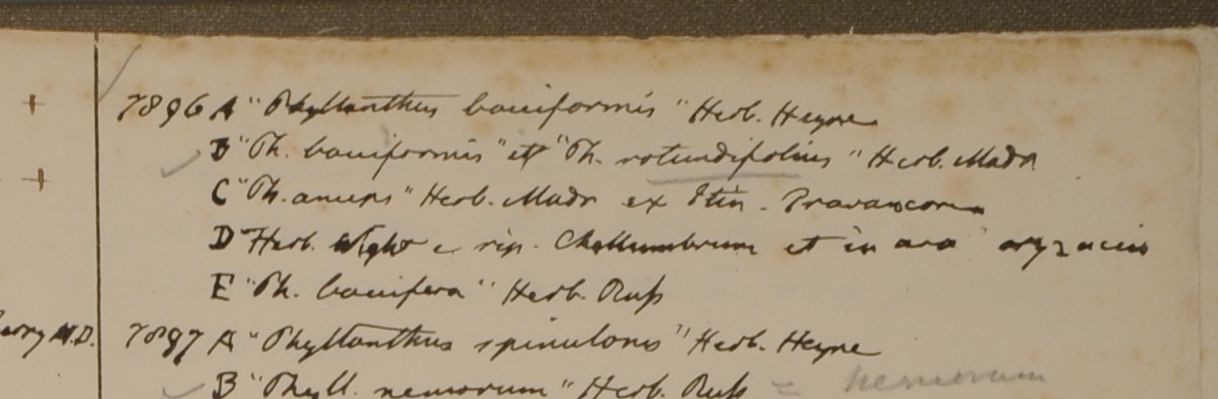 7896 A "Phyllanthus bacciformis" Herb. Heyne
B "Ph. bacciformis" et "Ph. rotundifolius" Herb. Madr
C "Ph. anceps" Herb. Madr ex Itin. Travancor
D Herb. Wight e rip. et in
E "Ph. baccifera" Herb. Ruſs
M.D. 7897 A "Phyllanthus spinulosus" Herb. Heyne
B "Phyll. nemorum" Herb. Ruſs = nemorum